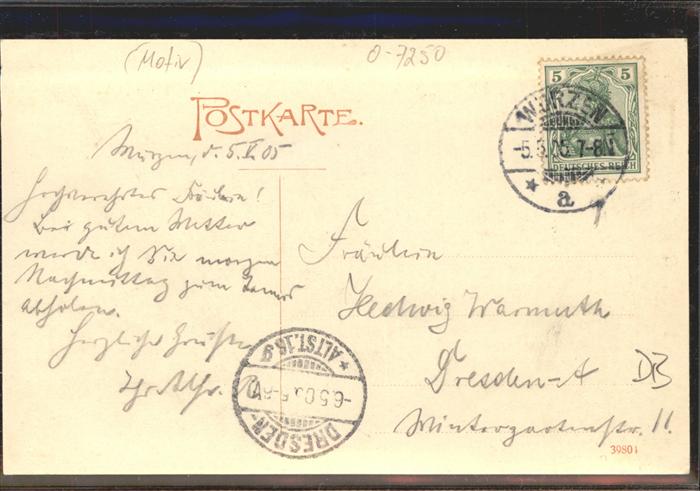 (Motiv)
0-7250
POSTKARTE.
5 5
DEUTSCHES REICH
WURZEN
-5.5.05.7-8N
* a *
Wurzen, d. 5.V.05
Hochverehrtes Fräulein!
Bei gutem Wetter
werde ich Sie morgen
Nachmittag zum Tennis
abholen.
Herzliche Grüße
Ihr
Fräulein
Hedwig Warmuth
Dresden-A
Wintergartenstr. 11.
DB
DRESDEN-
* ALTST.16.g
-6.5.05.
39801